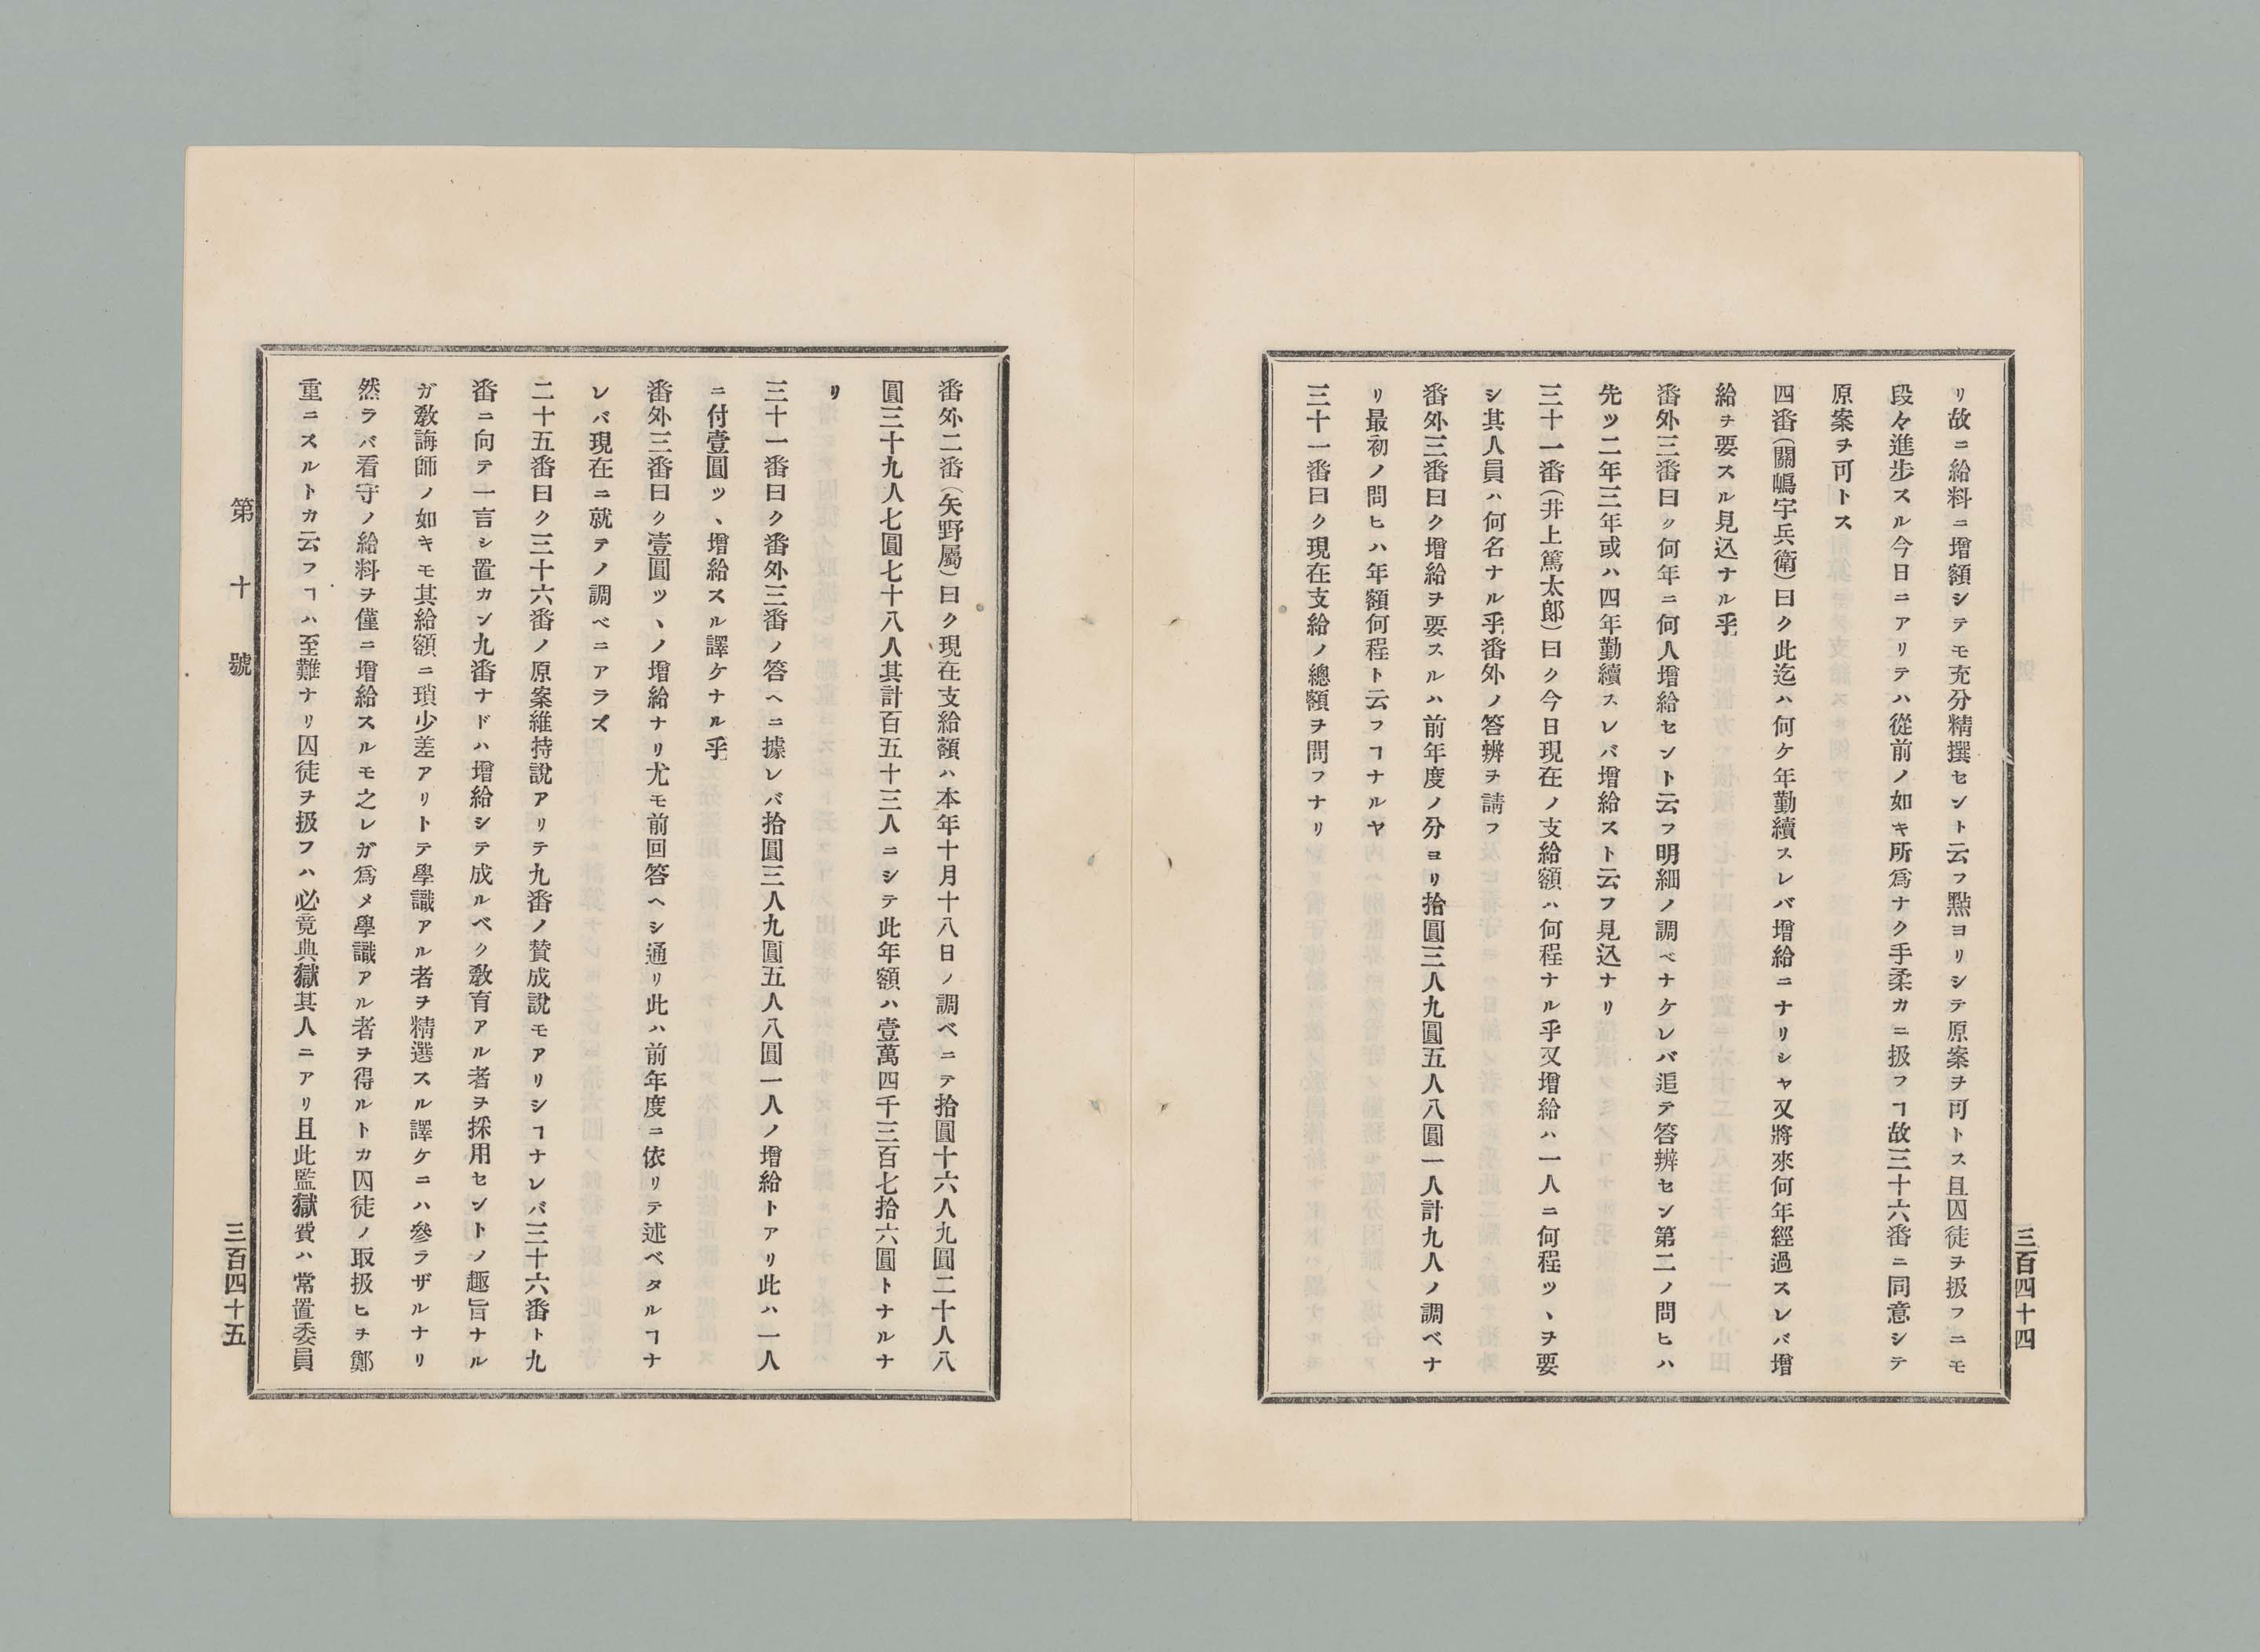 リ故ニ給料ニ增額シテモ充分精撰セント云フ點ヨリシテ原案ヲ可トス且囚徒ヲ扱フニモ
段々進步スル今日ニアリテハ從前ノ如キ所爲ナク手柔カニ扱フヿ故三十六番ニ同意シテ
原案ヲ可トス
四番(關嶋宇兵衛)曰ク此迄ハ何ケ年勤續スレバ增給ニナリシヤ又將來何年經過スレバ增
給ヲ要スル見込ナル乎
番外三番曰ク何年ニ何人增給セント云フ明細ノ調ベナケレバ追テ答辨セン第二ノ問ヒハ
先ツ二年三年或ハ四年勤續スレバ增給スト云フ見込ナリ
三十一番(井上篤太郎)曰ク今日現在ノ支給額ハ何程ナル乎又增給ハ一人ニ何程ツヽヲ要
シ其人員ハ何名ナル乎番外ノ答辨ヲ請フ
番外三番曰ク增給ヲ要スルハ前年度ノ分ヨリ拾圓三人九圓五人八圓一人計九人ノ調ベナ
リ最初ノ問ヒハ年額何程ト云フヿナルヤ
三十一番曰ク現在支給ノ總額ヲ問フナリ
三百四十四
番外二番(矢野屬)曰ク現在支給額ハ本年十月十八日ノ調ベニテ拾圓十六人九圓二十人八
圓三十九人七圓七十八人其計百五十三人ニシテ此年額ハ壹萬四千三百七拾六圓トナルナ
リ
三十一番曰ク番外三番ノ答ヘニ據レバ拾圓三人九圓五人八圓一人ノ增給トアリ此ハ一人
ニ付壹圓ツヽ增給スル譯ケナル乎
番外三番曰ク壹圓ツヽノ增給ナリ尤モ前回答ヘシ通リ此ハ前年度ニ依リテ述ベタルヿナ
レバ現在ニ就テノ調ベニアラズ
二十五番曰ク三十六番ノ原案維持說アリテ九番ノ賛成說モアリシヿナレバ三十六番ト九
番ニ向テ一言シ置カン九番ナドハ增給シテ成ルベク敎育アル者ヲ採用セントノ趣旨ナル
ガ敎誨師ノ如キモ其給額ニ瑣少差アリトテ學識アル者ヲ精選スル譯ケニハ參ラザルナリ
然ラバ看守ノ給料ヲ僅ニ增給スルモ之レガ爲メ學識アル者ヲ得ルトカ囚徒ノ取扱ヒヲ鄭
重ニスルトカ云フヿハ至難ナリ囚徒ヲ扱フハ必竟典獄其人ニアリ且此監獄費ハ常置委員
第十號
三百四十五